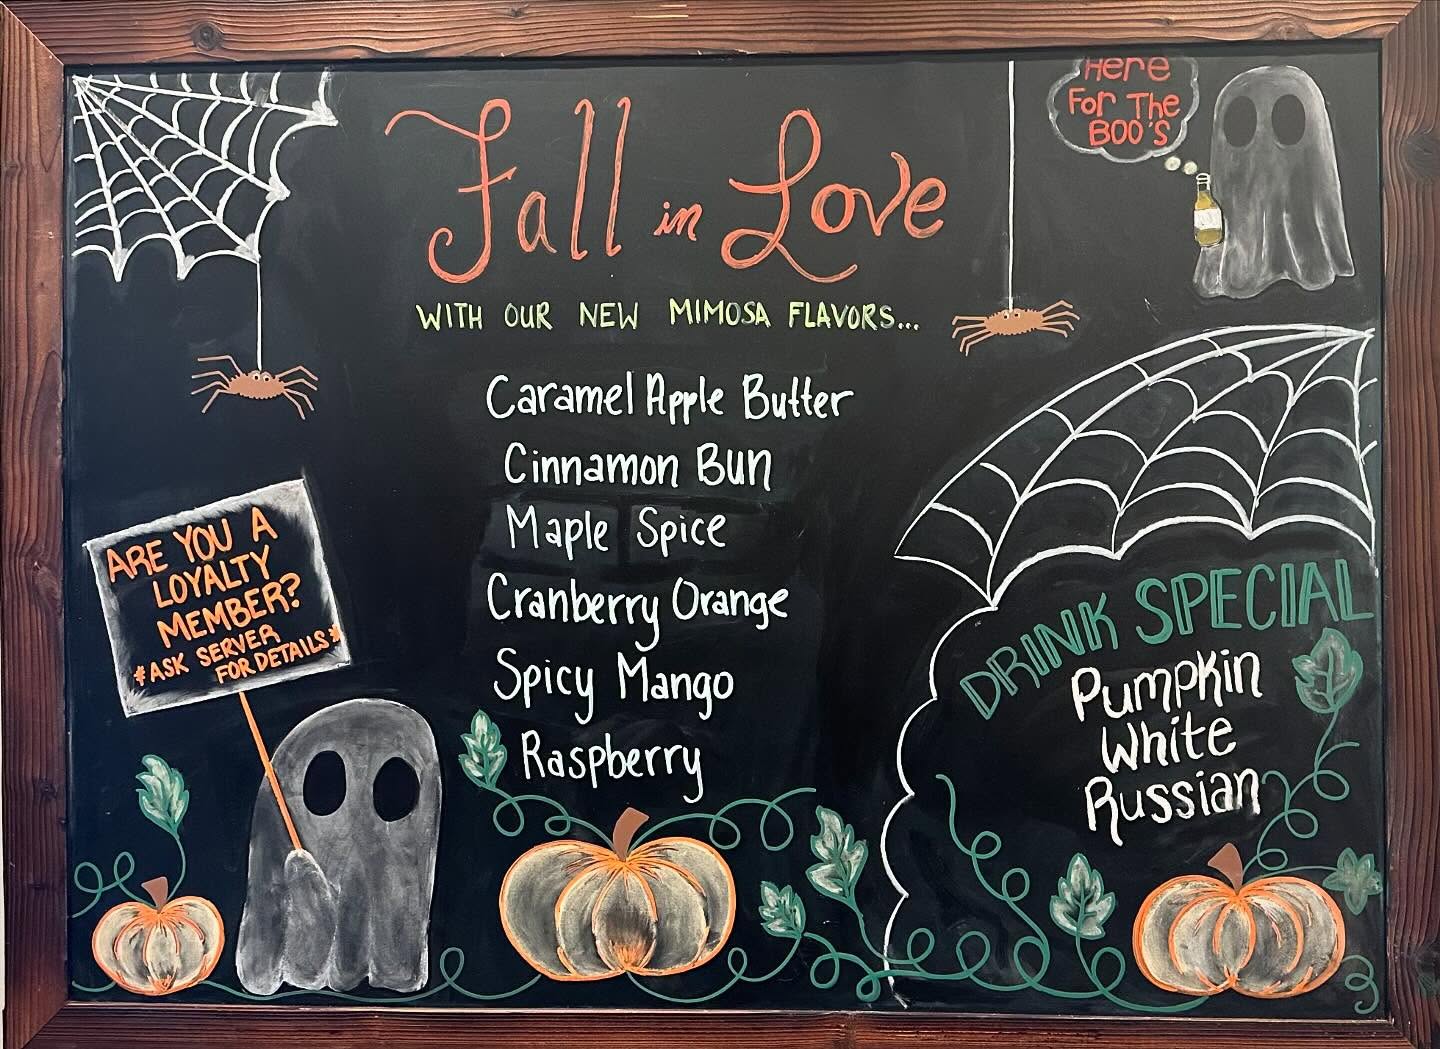 Fall in Love
WITH OUR NEW MIMOSA FLAVORS...
Caramel Apple Butter
Cinnamon Bun
Maple Spice
Cranberry Orange
Spicy Mango
Raspberry
Here
For The
BOO'S
ARE YOU A
LOYALTY
MEMBER?
*ASK SERVER
FOR DETAILS*
DRINK SPECIAL
Pumpkin
White
Russian